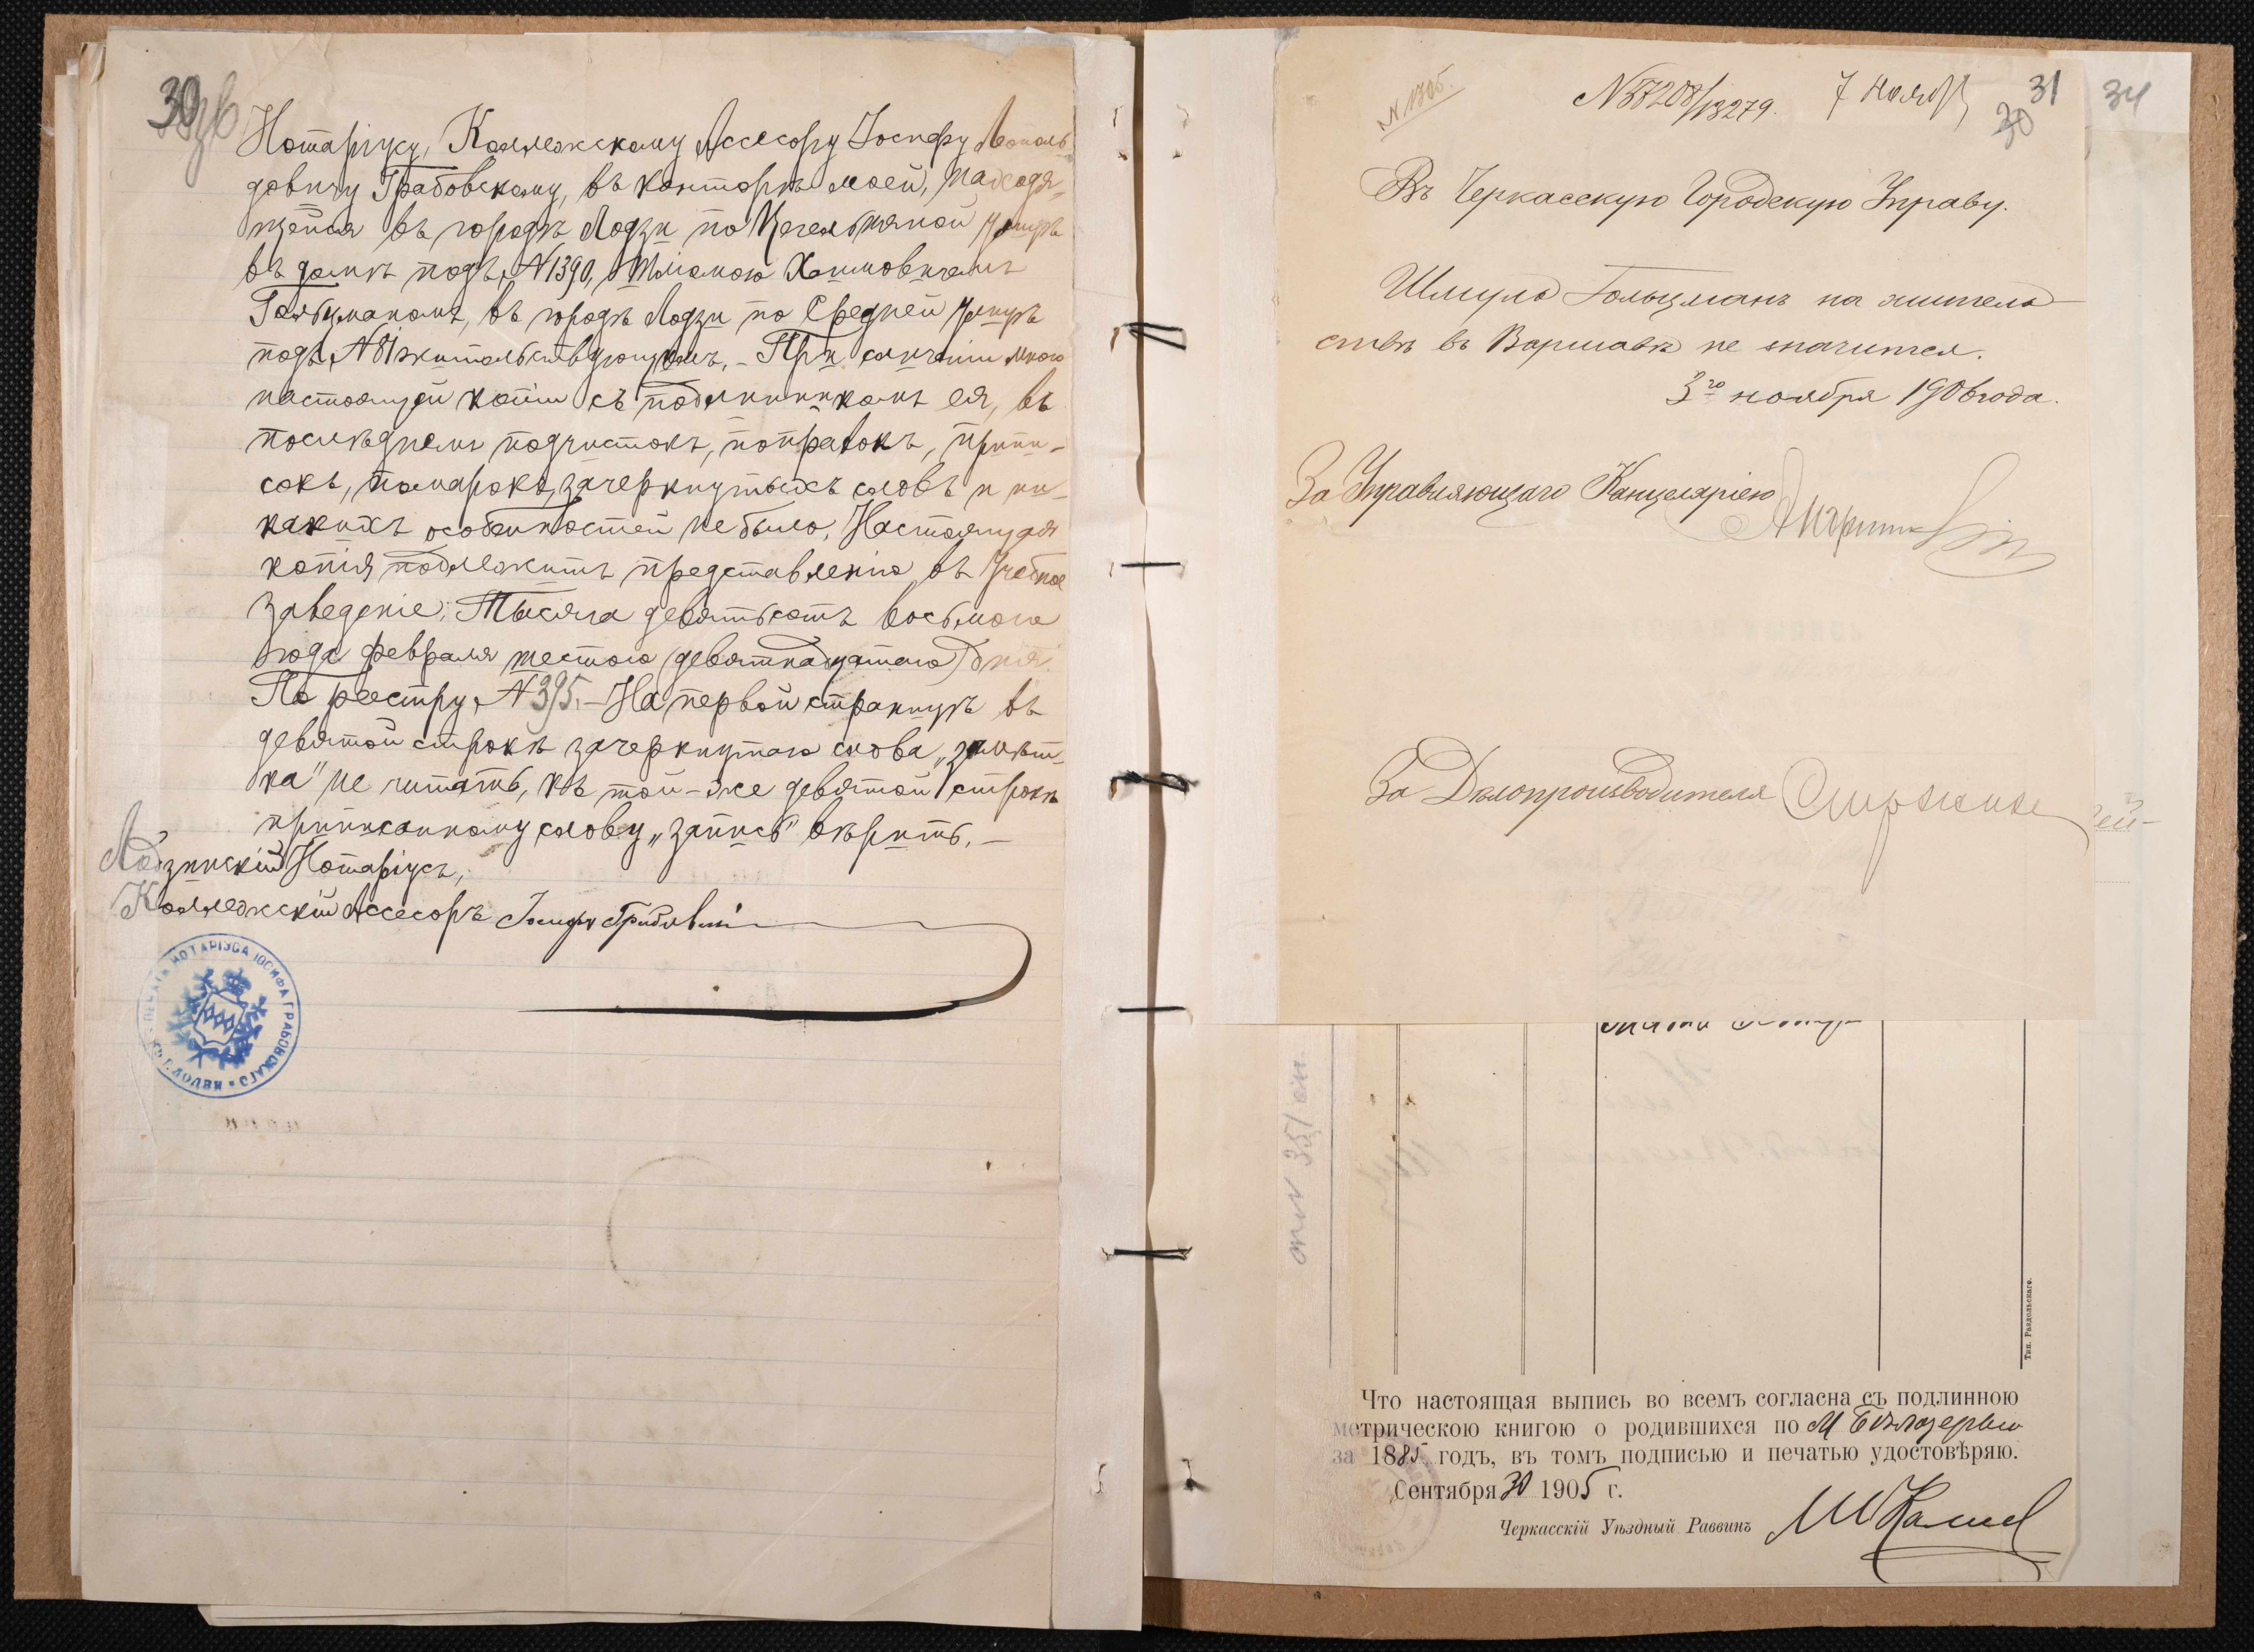 30
Нотаріусу, Коллежскому Ассесору Іосифу Леополь
довичу Грабовскому, въ конторѣ моей, находя-
щейся въ городѣ Лодзи по Цегельняной улицѣ
въ домѣ подъ №1390, Шліамою Хаимовичемъ
Гольцманомъ, въ городѣ Лодзи по Средней улицѣ
подъ №81 жительствующимъ. - При сличеніи мною
настоящей копіи съ подлинникомъ ея, въ
послѣднемъ подчистокъ, поправокъ, припи-
сокъ, помарокъ, зачеркнутыхъ словъ и ни-
какихъ особенностей не было. Настоящая
копія подлежитъ представленію въ Учебное
заведеніе. Тысяча девятьсотъ восьмого
года февраля шестого (девятнадцатого) дня.
По реестру №395. - На первой страницѣ въ
девятой строкѣ зачеркнутаго слова „замѣт-
ка" не читать, въ той-же девятой строкѣ
приписанному слову „запись" вѣрить. -
Лодзинскій Нотаріусъ,
Коллежскій Ассесоръ Іосифъ Грабовскій
ПЕЧАТЬ НОТАРІУСА ІОСИФА ГРАБОВСКАГО ВЪ Г. ЛОДЗИ
№ 1305.
№57208/13279. 7 Ноябр
31
30
34
Въ Черкасскую Городскую Управу.
Шмуль Гольцманъ на житель-
ствѣ въ Варшавѣ не значится.
3го ноября 1906 года.
За Управляющаго Канцеляріею
За Дѣлопроизводителя
ей-
351
Тип. Раздольскаго.
Что настоящая выпись во всемъ согласна съ подлинною
метрическою книгою о родившихся по М Бѣлозерью
за 1885 годъ, въ томъ подписью и печатью удостовѣряю.
Сентября 30 1905 г.
Черкасскій Уѣздный Раввинъ